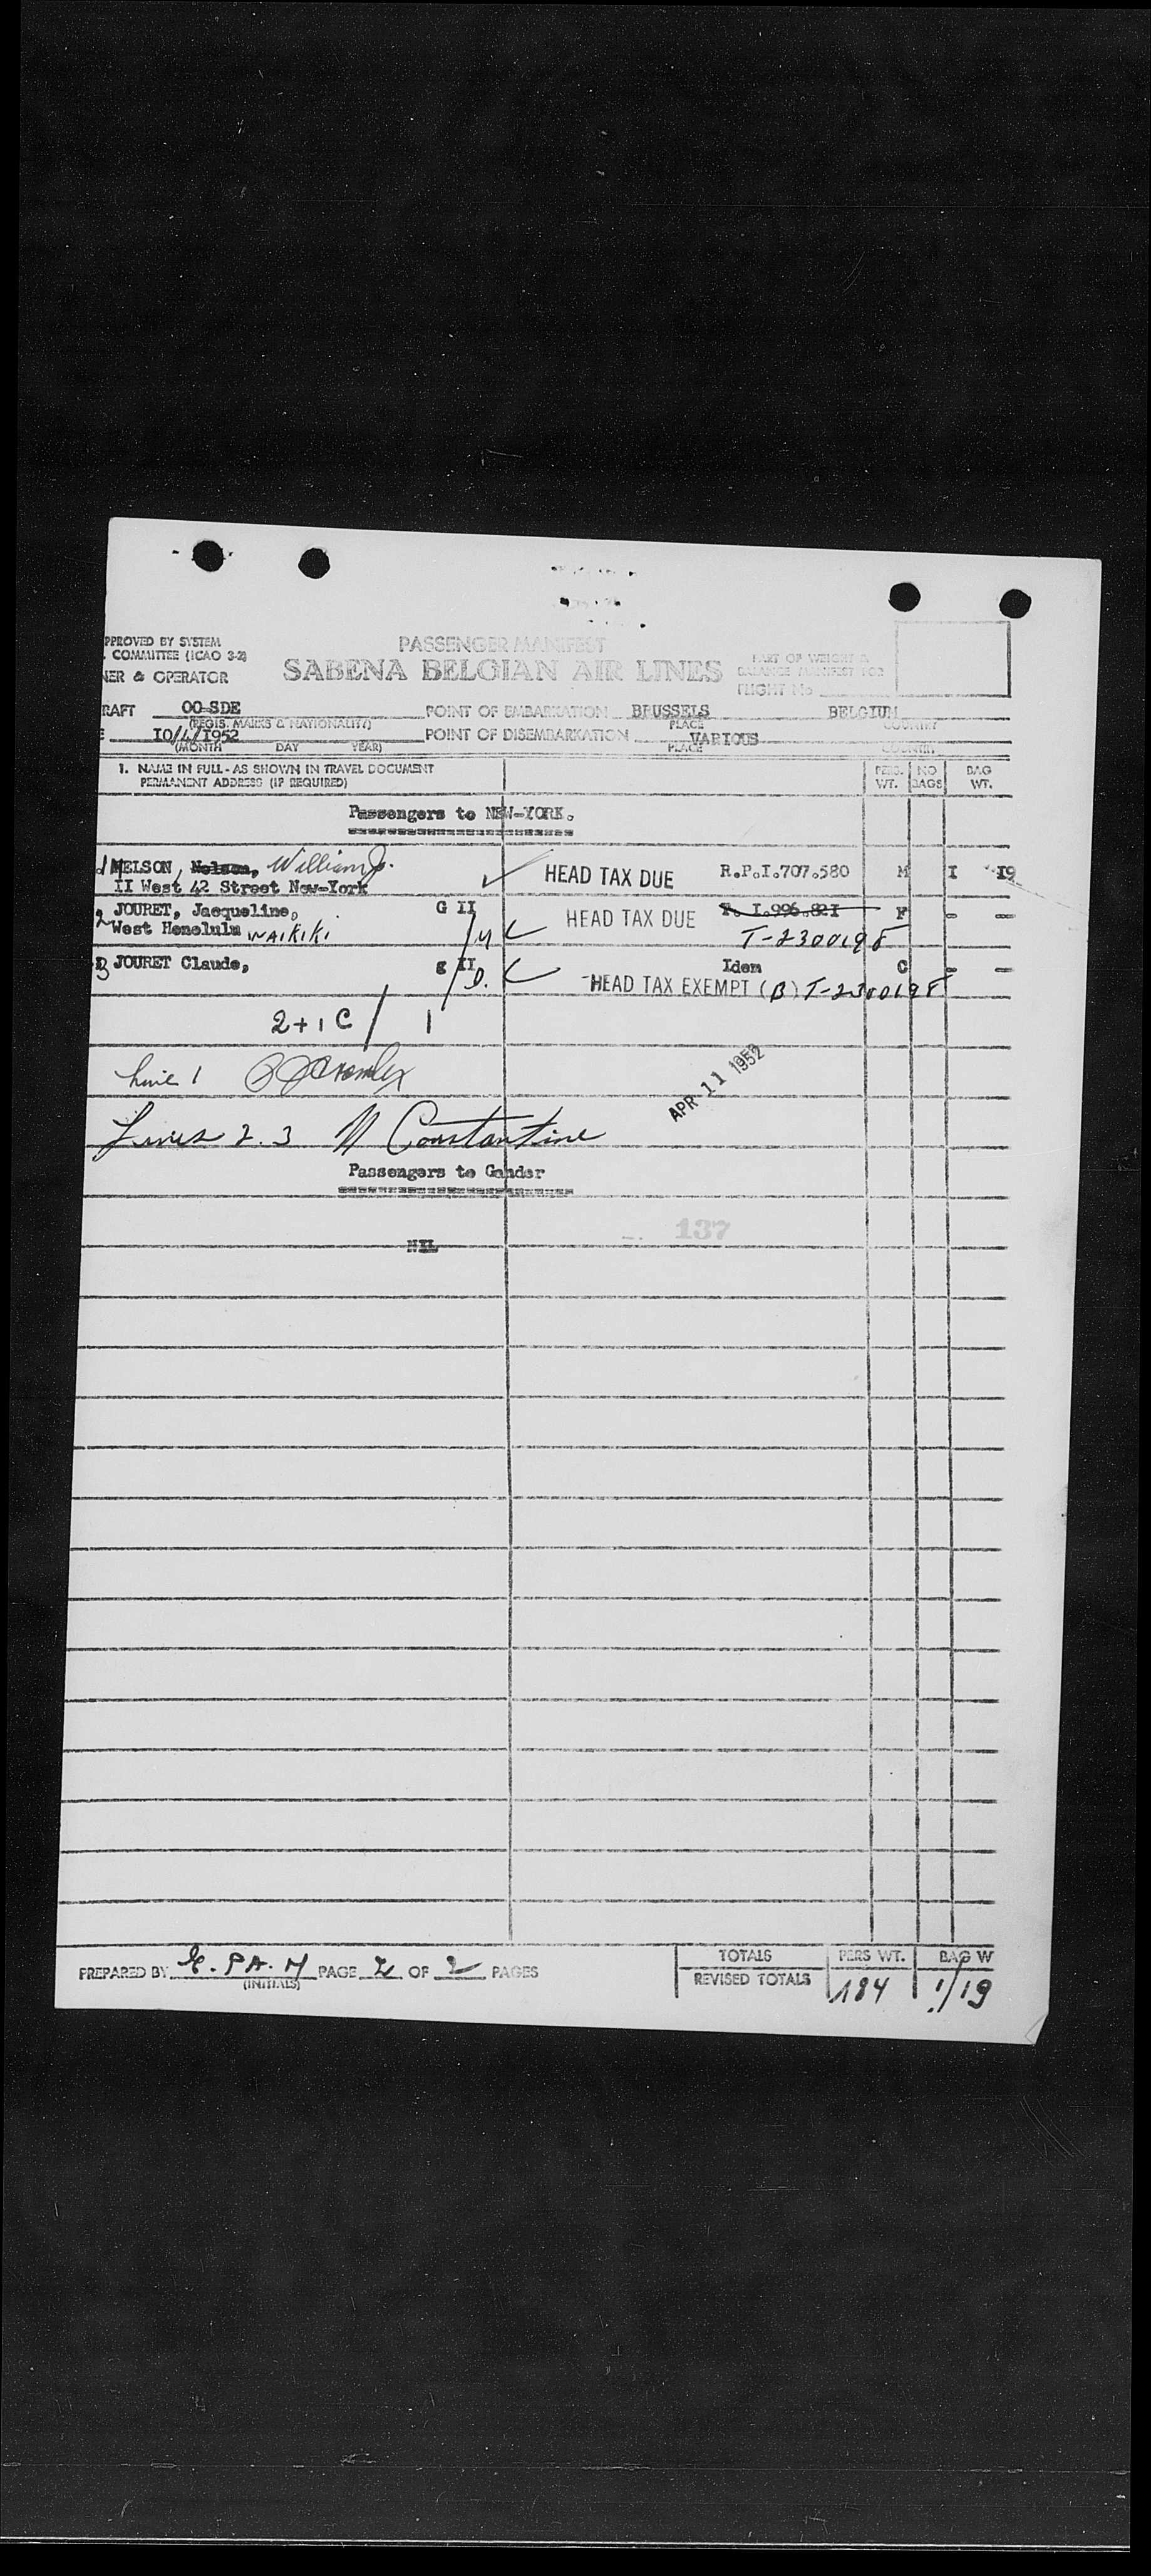 PPROVED BY SYSTEM
. COMMITTEE (ICAO 3-2)
NER & OPERATOR
PASSENGER MANIFEST
SABENA BELGIAN AIR LINES
PART OF WEIGHT &
BALANCE MANIFEST FOR
FLIGHT No
RAFT OO-SDE POINT OF EMBARKATION BRUSSELS BELGIUM
(REGIS. MARKS & NATIONALITY) PLACE COUNTRY
E IO/4/I952 POINT OF DISEMBARKATION VARIOUS
(MONTH DAY YEAR) PLACE COUNTRY
1. NAME IN FULL - AS SHOWN IN TRAVEL DOCUMENT
PERMANENT ADDRESS (IF REQUIRED)
PERS. WT. NO BAGS BAG WT.
Passengers to NEW-YORK.
1 NELSON, Nelson, William J. HEAD TAX DUE R.P.I.707.580 M I I9
II West 42 Street New-York
2 JOURET, Jacqueline, G II HEAD TAX DUE P. I.996.82I F - -
West Honolulu WAIKIKI M T-2300198
3 JOURET Claude, g II Idem C - -
D. HEAD TAX EXEMPT (B) T-2300198
2+1C / 1
Line 1
APR 11 1952
Lines 2.3 N Constantine
Passengers to Gander
137
NIL
TOTALS PERS WT. BAG W
PREPARED BY PAGE 2 OF 2 PAGES
(INITIALS)
REVISED TOTALS 184 1/19